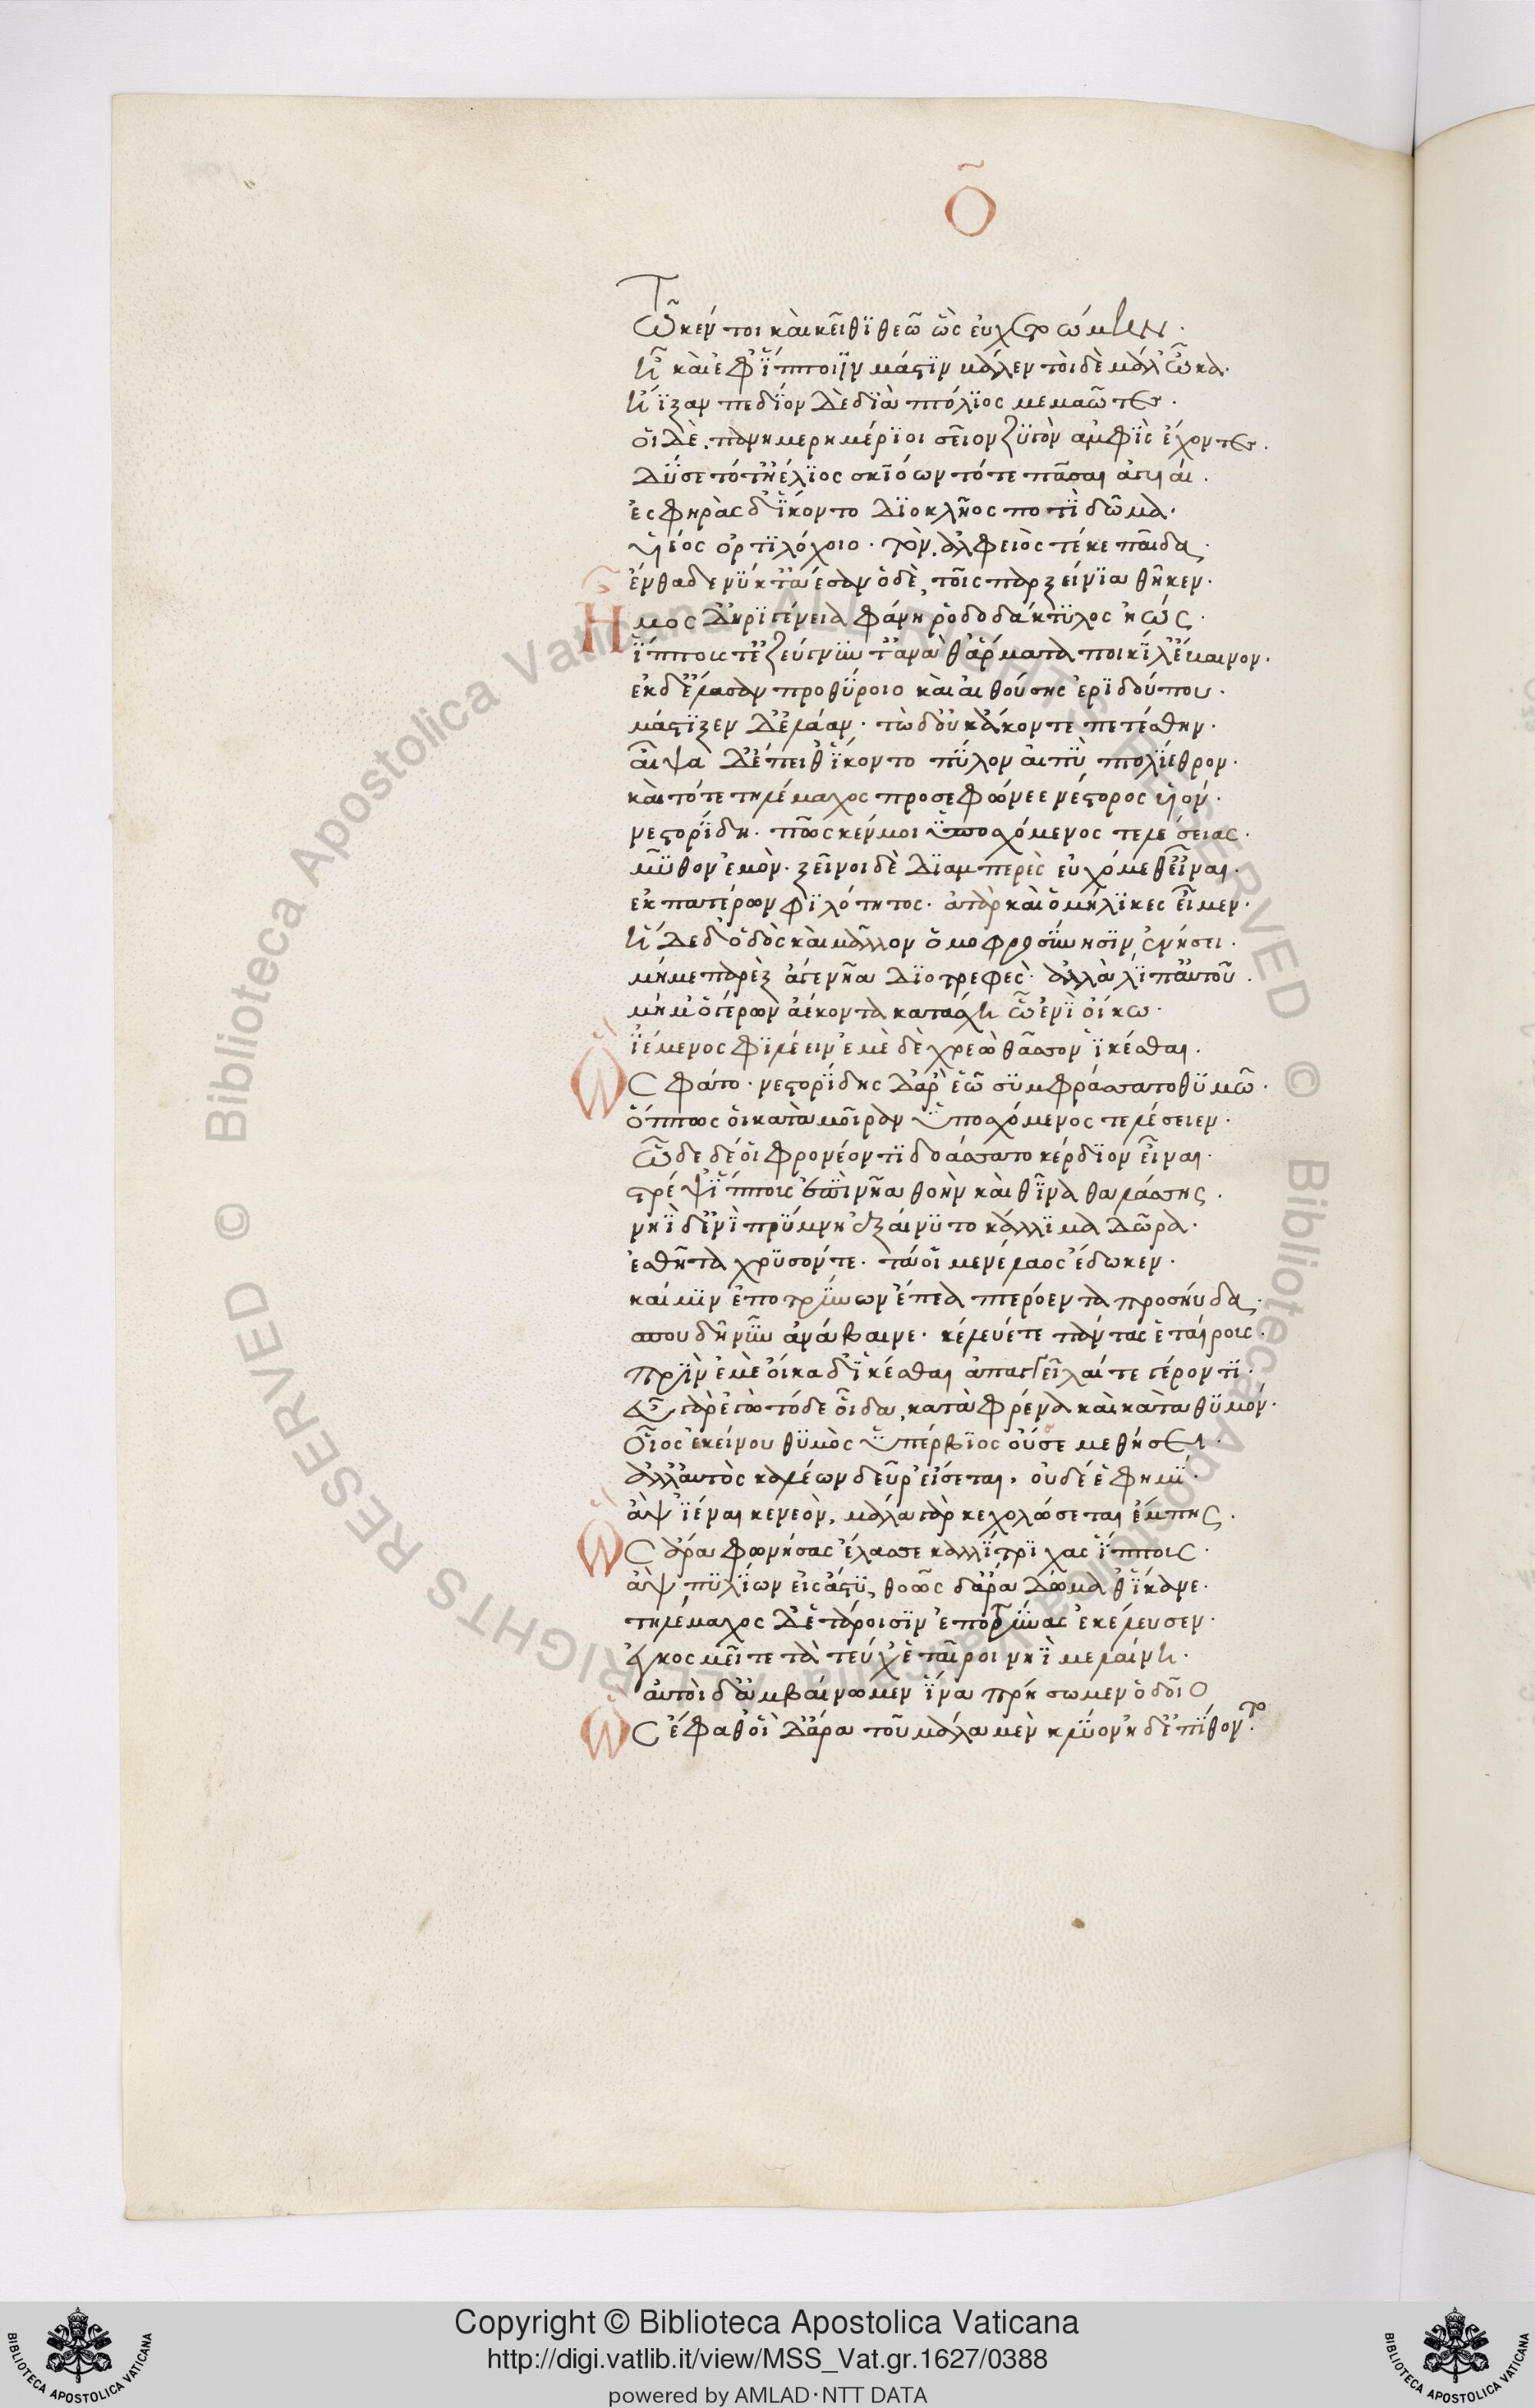 Ὀ
Τῶ κέν τοι καὶ κεῖθι θεῶ ὣς εὐχετοώμην.
ἦ καὶ ἐφ' ἵπποιϊν μάστιν βάλεν τοὶ δὲ μάλ' ὦκα.
ἤϊξαν πεδίον δὲ διὰ πτόλιος μεμαῶτες.
οἱ δὲ πανημερημέριοι σεῖον ζυγὸν ἀμφὶς ἔχοντες.
δύσετό τ' ἠέλιος σκιόωντό τε πᾶσαι ἀγυιάι.
ἐς φηρὰς δ' ἵκοντο διοκλῆος ποτὶ δῶμα.
υἱέος ὀρτιλόχοιο. τὸν ἀλφειὸς τέκε παῖδα.
ἔνθα δὲ νύκτ' ἄεσαν ὁ δὲ τοῖς παρ ξείνια θῆκεν.
Ἦμος δ' ἠριγένεια φάνη ῥοδοδάκτυλος ἠώς.
ἵππους τ' ἐζεύγνυντ' ἀνά θ' ἅρματα ποικίλ' ἔβαινον.
ἐκ δ' ἔλασαν προθύροιο καὶ αἰθούσης ἐριδούπου.
μάστιξεν δ' ἐλάαν. τὼ δ' οὐκ ἄκοντε πετέσθην.
αἶψα δ' ἔπειθ' ἵκοντο πύλου αἰπὺ πτολίεθρον.
καὶ τότε τηλέμαχος προσεφώνεε νέστορος υἱόν.
νεστορίδη. πῶς κέν μοι ὑποσχόμενος τελέσειας.
μῦθον ἐμὸν. ξεῖνοι δὲ διαμπερὲς εὐχόμεθ' εἶναι.
ἐκ πατέρων φιλότητος. ἀτὰρ καὶ ὁμήλικες εἶμεν.
ἥδε δ' ὁδὸς καὶ μᾶλλον ὁμοφροσύνησιν ἐνήσει.
μή με παρὲξ ἄγε νῆα διοτρεφὲς. ἀλλὰ λίπ' αὐτοῦ.
μή μ' ὁ γέρων ἀέκοντα κατάσχη ὧ ἐνὶ οἴκω.
ἱέμενος φιλέειν ἐμὲ δὲ χρεὼ θᾶσσον ἱκέσθαι.
Ὣς φάτο. νεστορίδης δ' ἄρ' ἑῶ συμφράσσατο θυμῶ.
ὅππως οἱ κατὰ μοῖραν ὑποσχόμενος τελέσειεν.
ὧδε δέ οἱ φρονέοντι δοάσσατο κέρδιον εἶναι.
στρέψ' ἵππους ἐπὶ νῆα θοὴν καὶ θῖνα θαλάσσης.
νηὶ δ' ἐνὶ πρύμνη ἐξαίνυτο κάλλιμα δῶρα.
ἐσθῆτα χρυσόν τε. τά οἱ μενέλαος ἔδωκεν.
καί μιν ἐποτρύνων ἔπεα πτερόεντα προσηύδα.
σπουδῆ νῦν ἀνάβαινε. κέλευέ τε πάντας ἑταίρους.
πρὶν ἐμὲ οἴκαδ' ἱκέσθαι ἀπαγγεῖλαί τε γέροντι.
εὖ γὰρ ἐγὼ τόδε οἶδα, κατὰ φρένα καὶ κατὰ θυμόν.
οἷος ἐκείνου θυμὸς ὑπέρβιος οὔ σε μεθήσει.
ἀλλ' αὐτὸς καλέων δεῦρ' εἴσεται. οὐδέ ἑ φημί.
ἂψ ἰέναι κενεὸν, μάλα γὰρ κεχολώσεται ἔμπης.
Ὣς ἄρα φωνήσας ἔλασσε καλλίτριχας ἵππους.
ἂψ πυλίων εἰς ἄστυ, θοῶς δ' ἄρα δώμαθ' ἵκανε.
τηλέμαχος δ' ἑτάροισιν ἐποτρύνας ἐκέλευσεν.
ἐγκοσμεῖτε τὰ τεύχε' ἑταῖροι νηὶ μελαίνη.
αὐτοί δ' ἀμβαίνωμεν ἵνα πρήσωμεν ὁδοῖο
Ὣς ἔφαθ' οἱ δ' ἄρα τοῦ μάλα μὲν κλύον ἠδ' ἐπίθοντο.
Copyright © Biblioteca Apostolica Vaticana
http://digi.vatlib.it/view/MSS_Vat.gr.1627/0388
powered by AMLAD·NTT DATA